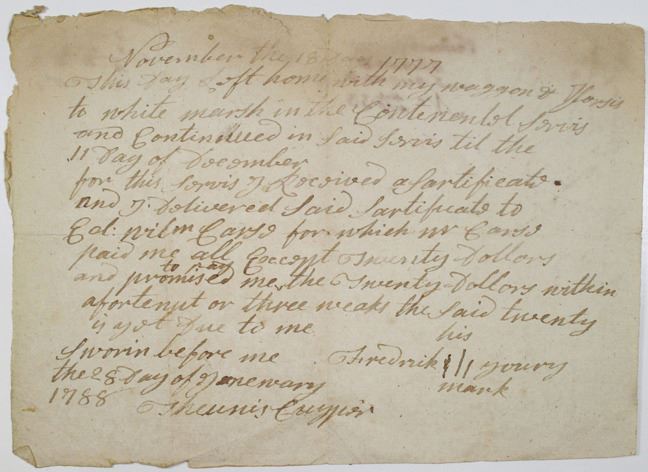 November the 18 Day 1777
This Day I left home with my waggon & Horsis
to white marsh in the Continentol Servis
and Continued in Said Servis til the
11 Day of December
for this Servis I Received a Sartificate
and I Delivered Said Sartificate to
for which mr
paid me all Except Twenty Dollors
and promised to pay me the Twenty Dollors within
a fortenyt or three weaks the Said twenty
is yet Due to me
his
Sworin before me Fredrik youry
the 28 Day of Jenewary mark
1788 Theunis Cuypier